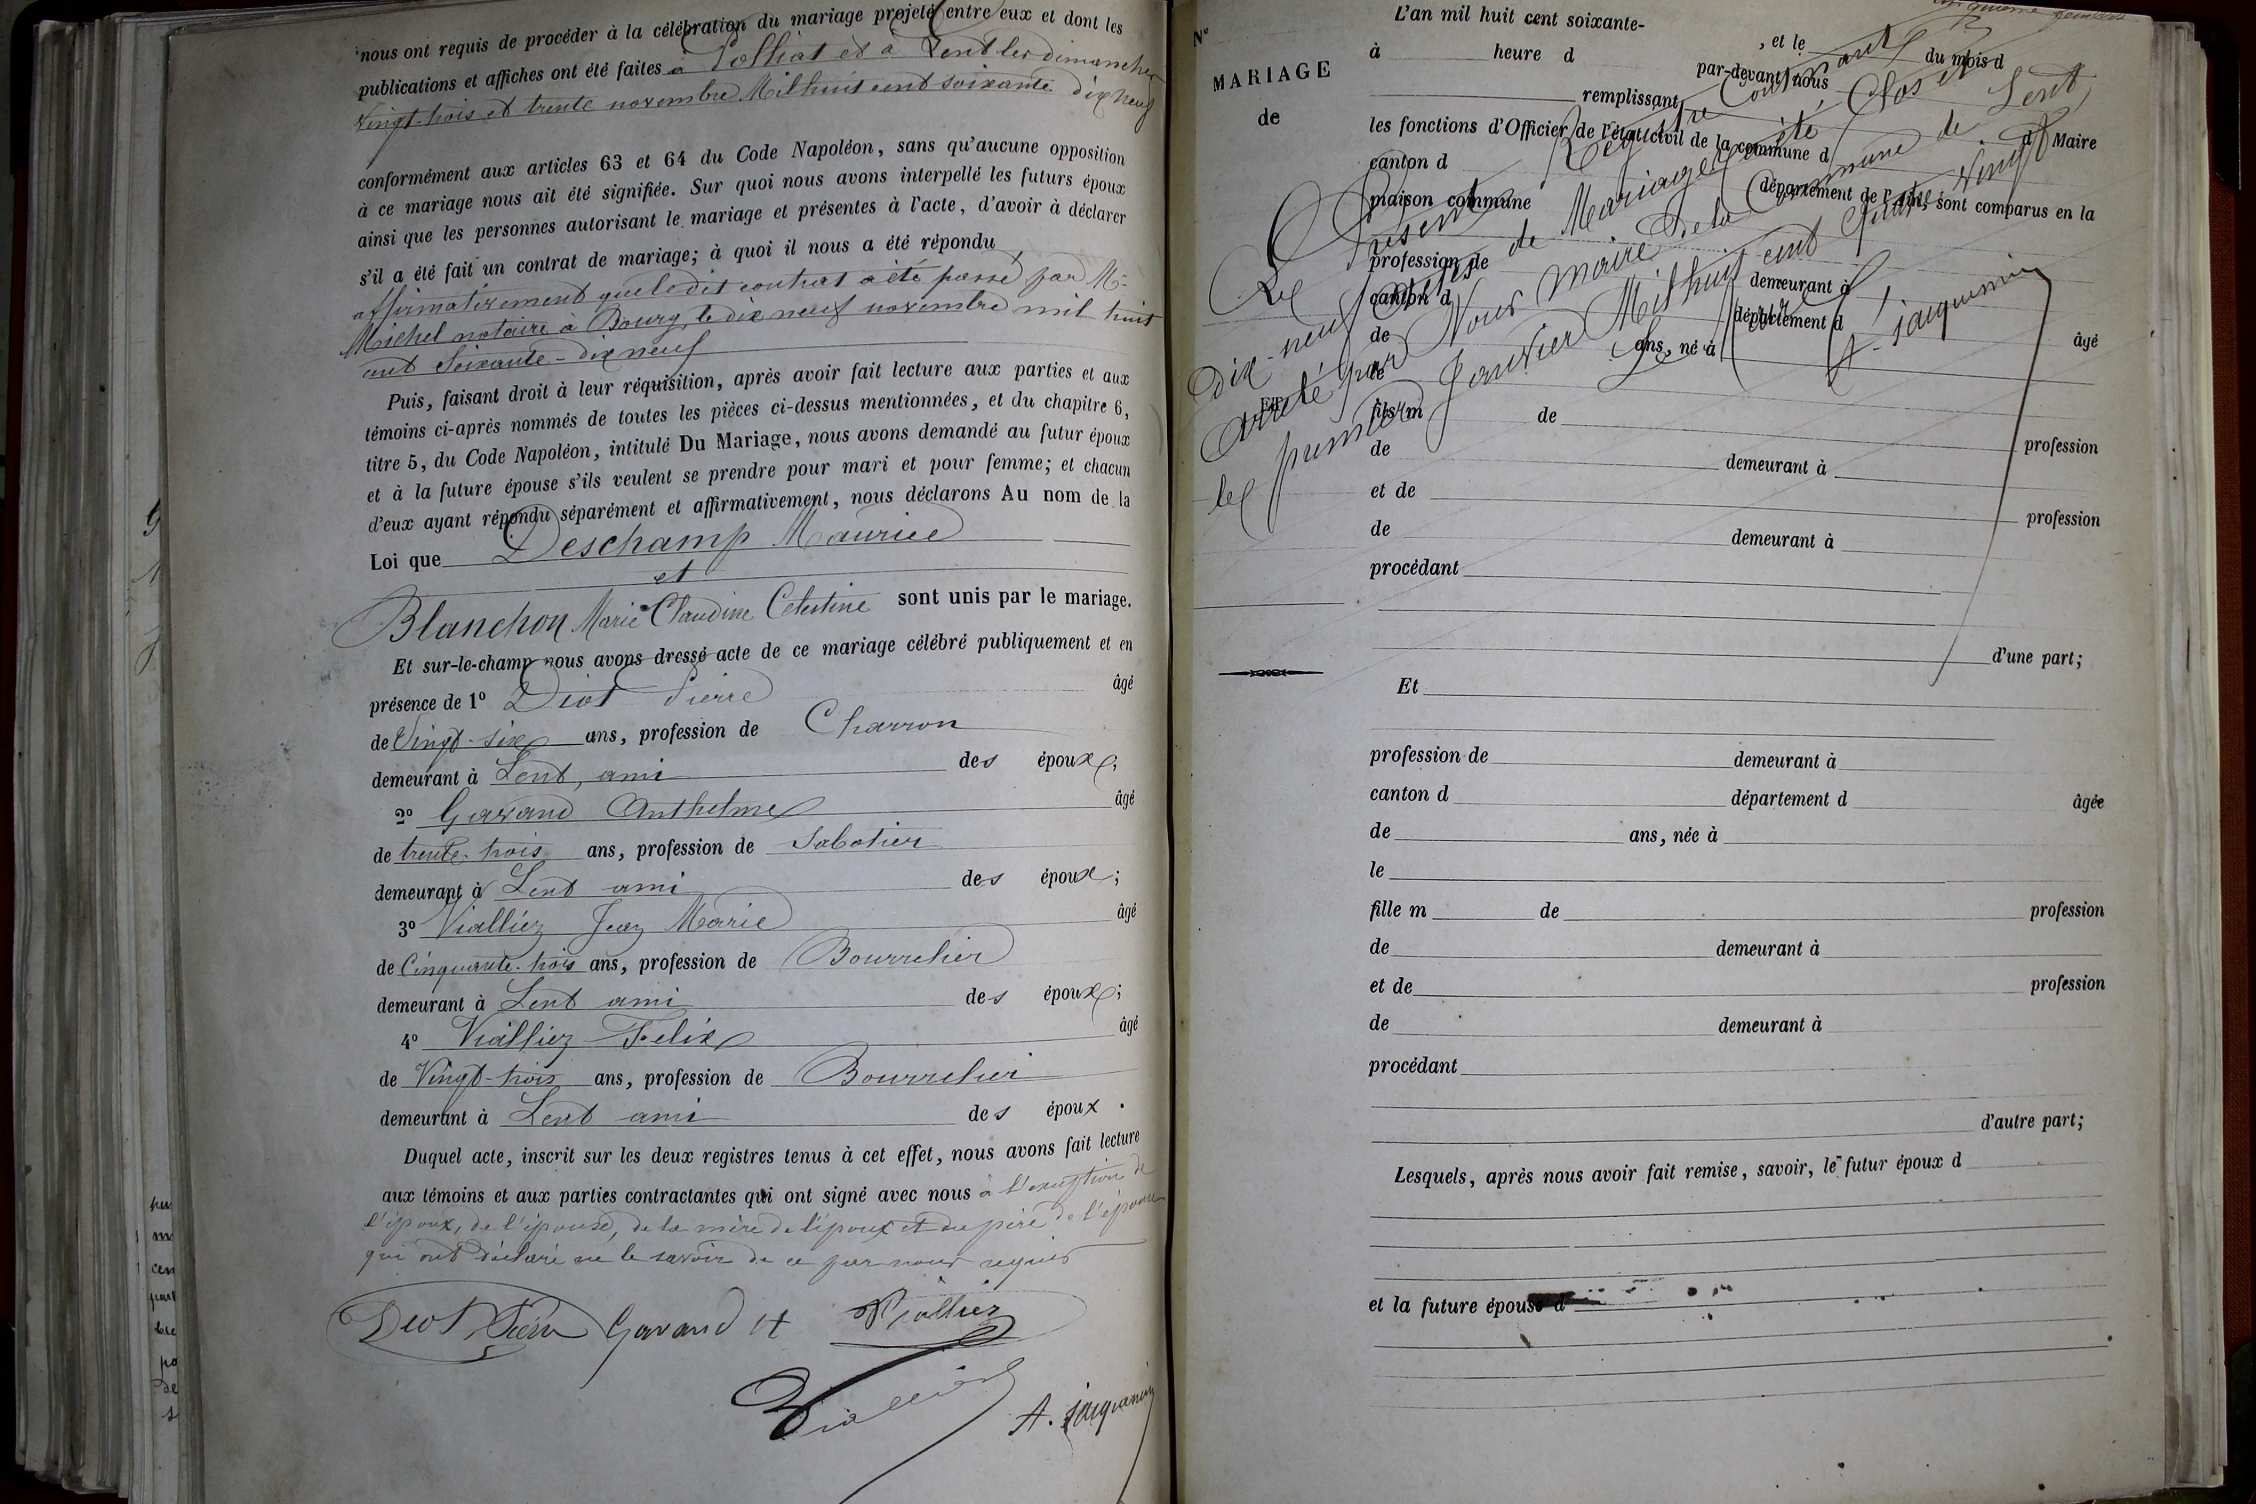 nous ont requis de procéder à la célébration du mariage projeté entre eux et dont les
publications et affiches ont été faites à Polliat et à Lent les dimanches
vingt-trois et trente novembre Mil huit cent soixante dix neuf
conformément aux articles 63 et 64 du Code Napoléon, sans qu'aucune opposition
à ce mariage nous ait été signifiée. Sur quoi nous avons interpellé les futurs époux
ainsi que les personnes autorisant le mariage et présentes à l'acte, d'avoir à déclarer
s'il a été fait un contrat de mariage; à quoi il nous a été répondu
affirmativement que le dit contrat a été passé par Me
Michel notaire à Bourg, le dix neuf novembre mil huit
cent soixante-dix neuf
Puis, faisant droit à leur réquisition, après avoir fait lecture aux parties et aux
témoins ci-après nommés de toutes les pièces ci-dessus mentionnées, et du chapitre 6,
titre 5, du Code Napoléon, intitulé Du Mariage, nous avons demandé au futur époux
et à la future épouse s'ils veulent se prendre pour mari et pour femme; et chacun
d'eux ayant répondu séparément et affirmativement, nous déclarons Au nom de la
Loi que Deschamp Maurice
et
Blanchon Marie Claudine Celestine sont unis par le mariage.
Et sur-le-champ nous avons dressé acte de ce mariage célébré publiquement et en
présence de 1º Diot Pierre âgé
de Vingt-six ans, profession de Charron
demeurant à Lent, ami des époux;
2º Gavand Anthelme âgé
de trente-trois ans, profession de Sabotier
demeurant à Lent ami des époux;
3º Vialliez Jean Marie âgé
de Cinquante-trois ans, profession de Bourrelier
demeurant à Lent ami des époux;
4º Vialliez Felix âgé
de Vingt-trois ans, profession de Bourrelier
demeurant à Lent ami des époux.
Duquel acte, inscrit sur les deux registres tenus à cet effet, nous avons fait lecture
aux témoins et aux parties contractantes qui ont signé avec nous à l'exception de
l'époux, de l'épouse, de la mère de l'époux et du père de l'épouse
qui ont déclaré ne le savoir de ce par nous requis
Diot Pierre Gavand A Vialliez
Vialliez
A. Jacquemin
Nº
MARIAGE
de
ET
L'an mil huit cent soixante-
, et le du mois d
à heure d par-devant nous
remplissant
les fonctions d'Officier de l'état civil de la commune d
d Maire
canton d département de l'Ain, sont comparus en la
maison commune
profession de demeurant à
canton d département d âgé
de ans, né à
le
fils m de profession
de demeurant à
et de profession
de demeurant à
procédant
d'une part;
Le Présent Registre Contenant
dix-neuf Actes de Mariages a été Clos et
arrêté par Nous Maire de la Commune de Lent,
le premier Janvier Mil huit cent quatre-vingt
Le Maire
A. Jacquemin
Et
profession de demeurant à
canton d département d âgée
de ans, née à
le
fille m de profession
de demeurant à
et de profession
de demeurant à
procédant
d'autre part;
Lesquels, après nous avoir fait remise, savoir, le futur époux d
et la future épouse d